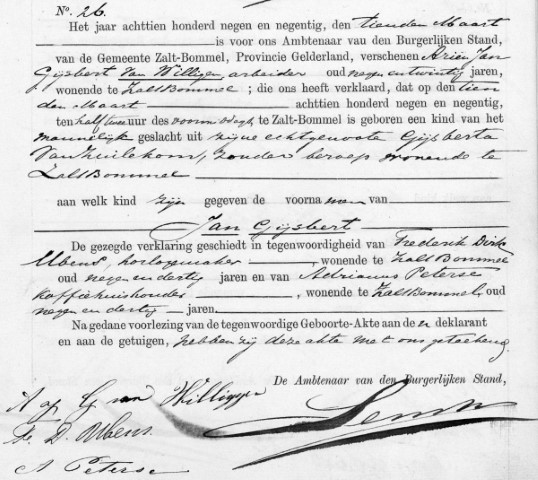 No. 26.
Het jaar achttien honderd negen en negentig, den tienden Maart
is voor ons Ambtenaar van den Burgerlijken Stand,
van de Gemeente Zalt-Bommel, Provincie Gelderland, verschenen Ariën Jan
Gijsbert van Willigen, arbeider oud negen en twintig jaren,
wonende te Zalt Bommel; die ons heeft verklaard, dat op den tien
den Maart achttien honderd negen en negentig,
ten half twee uur des voormiddags, te Zalt-Bommel is geboren een kind van het
mannelijk geslacht uit zijne echtgenoote Gijsberta
van Zuilekom, zonder beroep wonende te
Zalt Bommel
aan welk kind zijn gegeven de voornamen van
Jan Gijsbert
De gezegde verklaring geschiedt in tegenwoordigheid van Frederik Dirk
Ubens, horlogemaker, wonende te Zalt Bommel
oud negen en dertig jaren en van Adrianus Peterse
koffiehuishouder, wonende te Zalt Bommel, oud
negen en dertig jaren.
Na gedane voorlezing van de tegenwoordige Geboorte-Akte aan de en deklarant
en aan de getuigen, hebben zij deze akte met ons geteekend.
De Ambtenaar van den Burgerlijken Stand,
A G van Willigen
Fr. D. Ubens
A Peterse